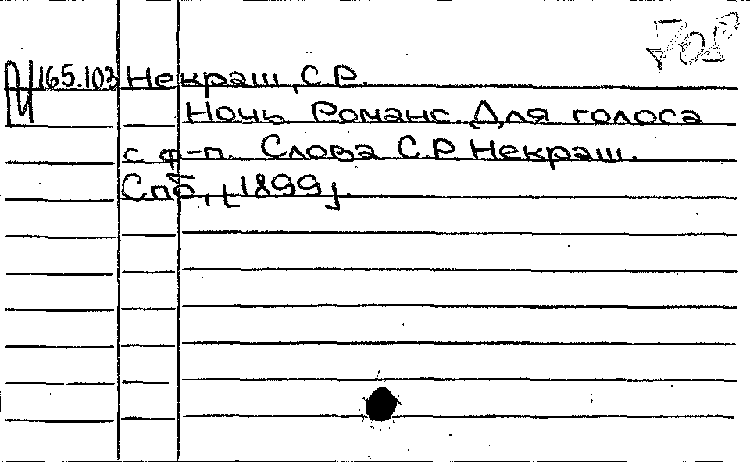 165.103 Некраш, С.Р.
Ночь. Романс. Для голоса
с ф-п. Слова С.Р. Некраш.
Спб, [1899].